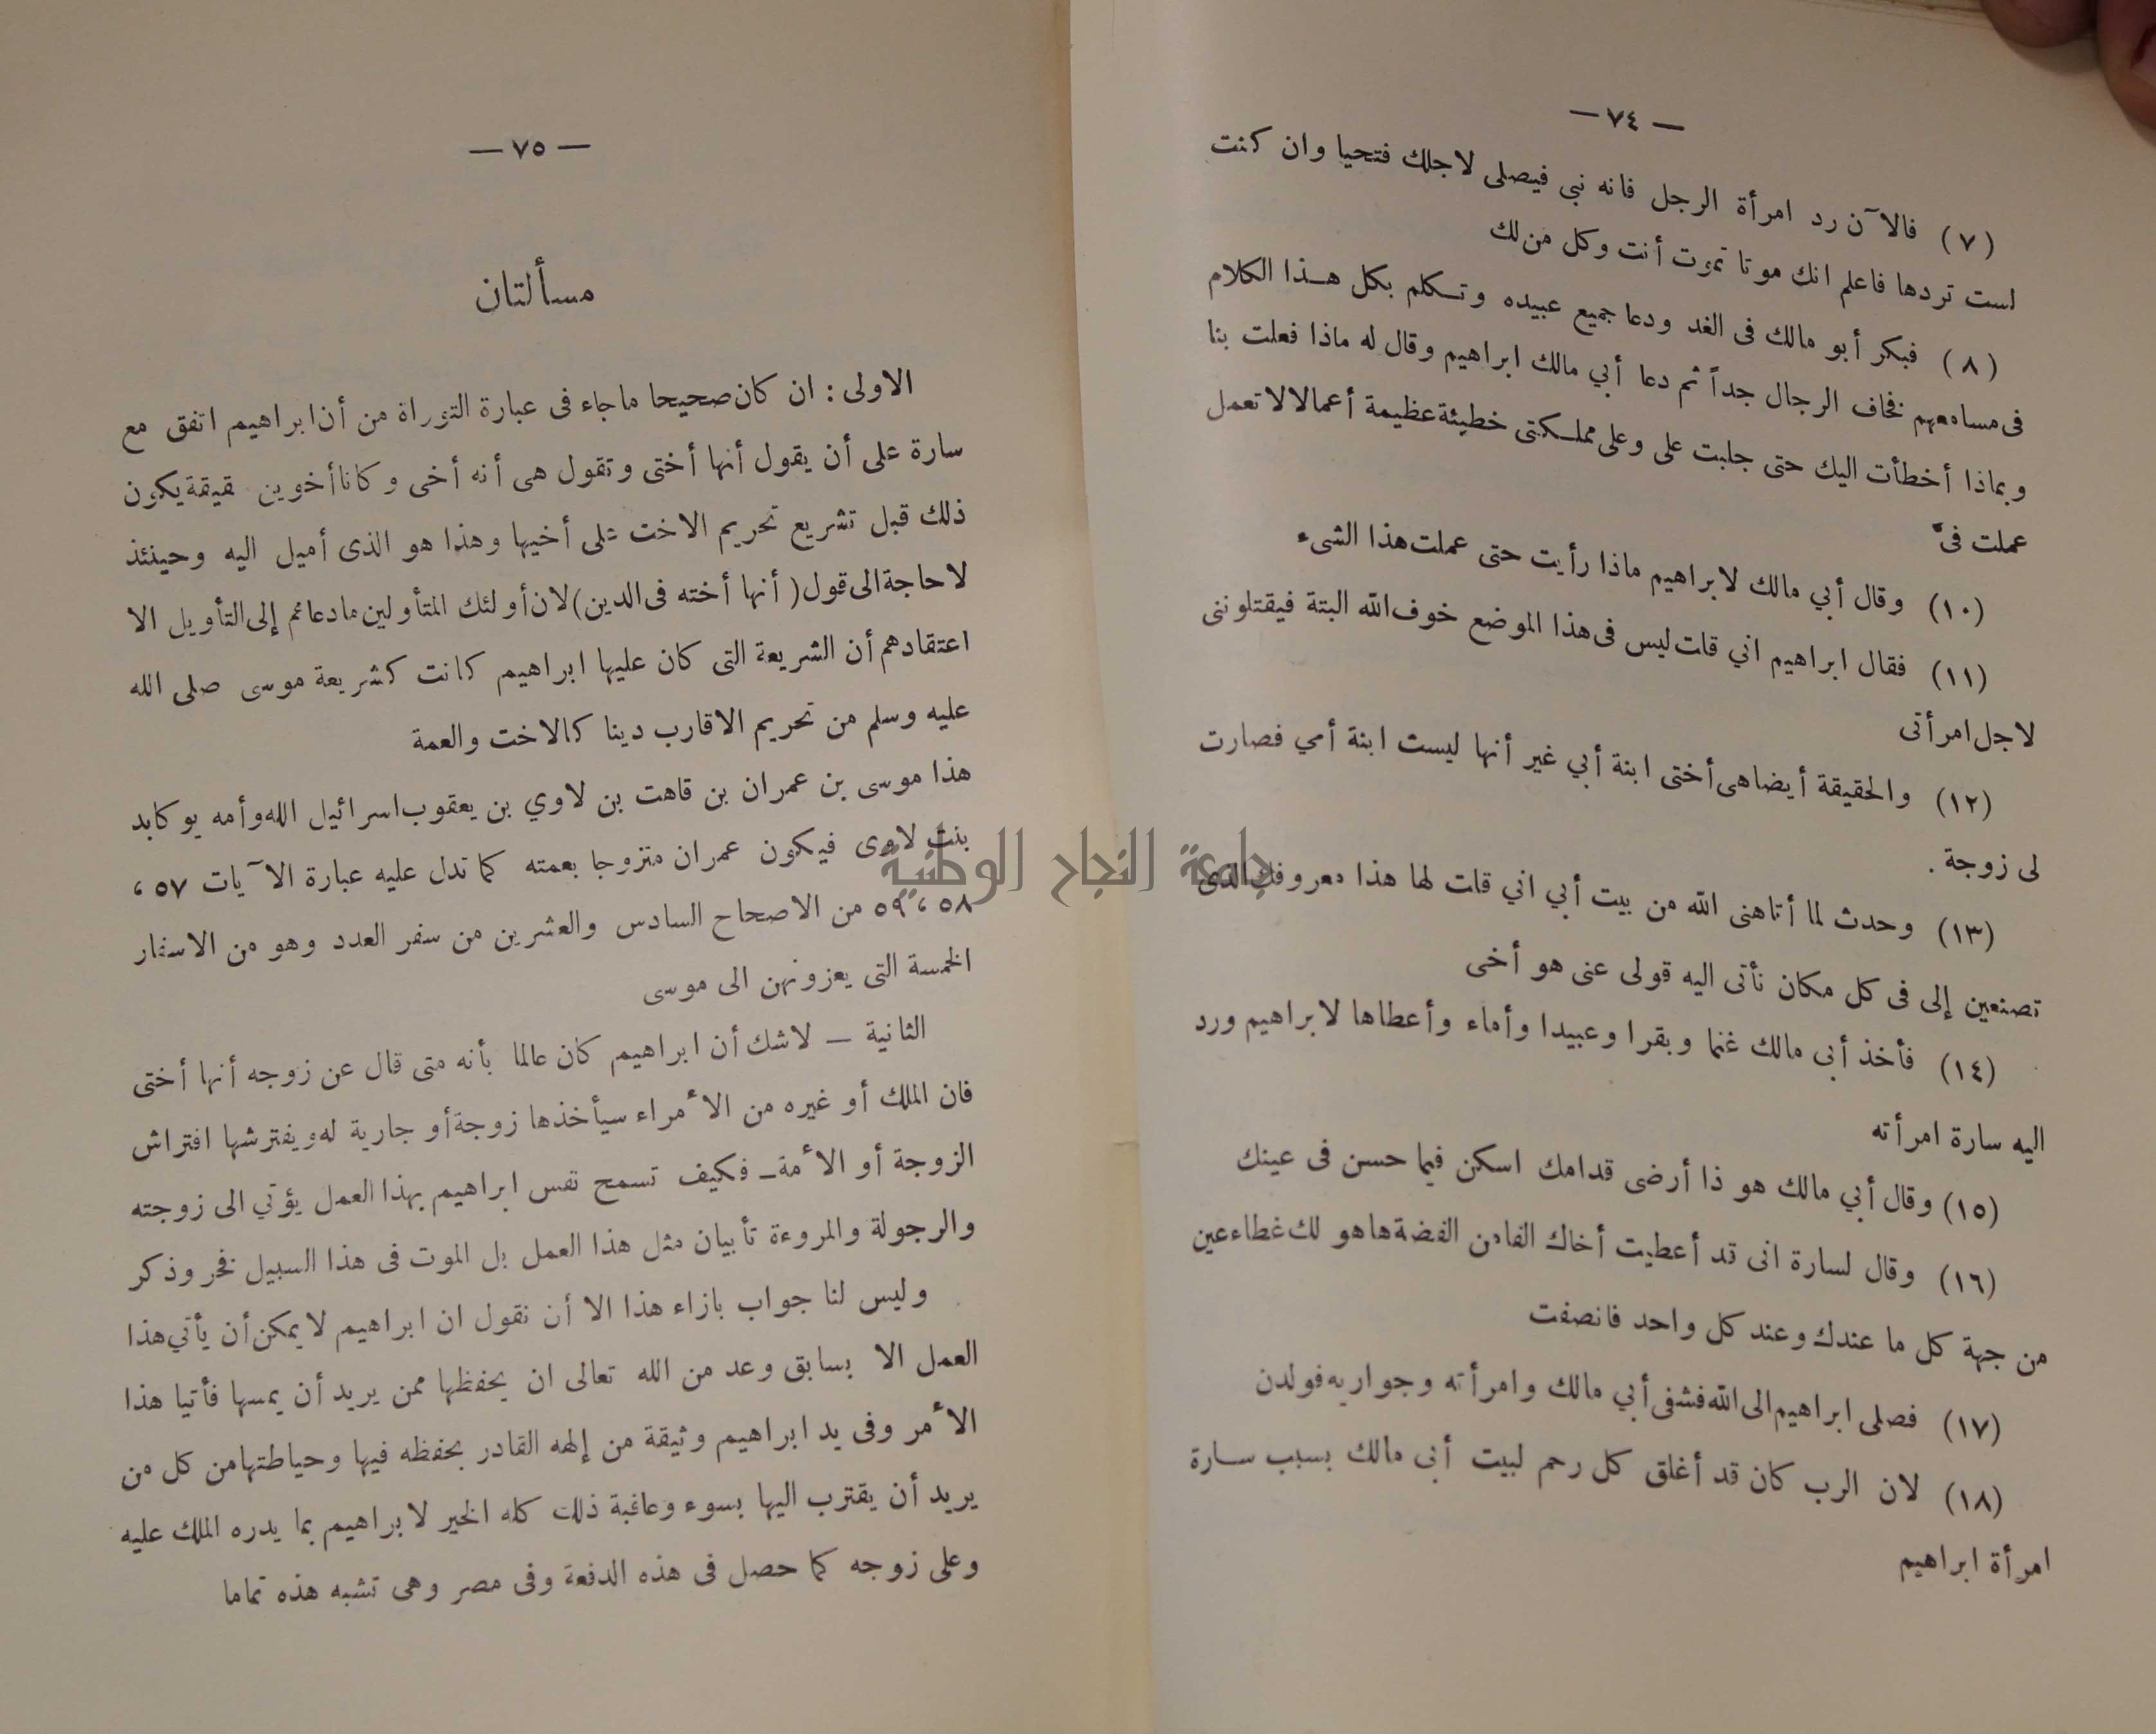 — ٧٤ —
(٧) فالآن رد امرأة الرجل فانه نبى فيصلى لاجلك فتحيا وان كنت
لست تردها فاعلم انك موتا تموت أنت وكل من لك
(٨) فبكر أبو مالك فى الغد ودعا جميع عبيده وتكلم بكل هذا الكلام
فى مسامعهم فخاف الرجال جداً ثم دعا أبي مالك ابراهيم وقال له ماذا فعلت بنا
وبماذا أخطأت اليك حتى جلبت على وعلى مملكتى خطيئة عظيمة أعمالا لا تعمل
عملت فىّ
(١٠) وقال أبي مالك لابراهيم ماذا رأيت حتى عملت هذا الشىء
(١١) فقال ابراهيم اني قلت ليس فى هذا الموضع خوف الله البتة فيقتلوننى
لاجل امرأتى
(١٢) والحقيقة أيضا هى أختى ابنة أبي غير أنها ليست ابنة أمي فصارت
لى زوجة .
(١٣) وحدث لما أتاهنى الله من بيت أبي اني قلت لها هذا معروفك الذى
تصنعين إلى فى كل مكان نأتى اليه قولى عنى هو أخى
(١٤) فأخذ أبى مالك غنما وبقرا وعبيدا وأماء وأعطاها لابراهيم ورد
اليه سارة امرأته
(١٥) وقال أبي مالك هو ذا أرضى قدامك اسكن فيما حسن فى عينك
(١٦) وقال لسارة انى قد أعطيت أخاك الفا من الفضة ها هو لك غطاء عين
من جهة كل ما عندك وعند كل واحد فانصفت
(١٧) فصلى ابراهيم الى الله فشفى أبي مالك وامرأته وجواريه فولدن
(١٨) لان الرب كان قد أغلق كل رحم لبيت أبى مالك بسبب سارة
امرأة ابراهيم
— ٧٥ —
مسألتان
الاولى : ان كان صحيحا ما جاء فى عبارة التوراة من أن ابراهيم اتفق مع
سارة على أن يقول أنها أختى وتقول هى أنه أخى وكانا أخوين حقيقة يكون
ذلك قبل تشريع تحريم الاخت على أخيها وهذا هو الذى أميل اليه وحينئذ
لا حاجة الى قول ( أنها أخته فى الدين ) لان أولئك المتأولين ما دعاهم إلى التأويل الا
اعتقادهم أن الشريعة التى كان عليها ابراهيم كانت كشريعة موسى صلى الله
عليه وسلم من تحريم الاقارب دينا كالاخت والعمة
هذا موسى بن عمران بن قاهت بن لاوي بن يعقوب اسرائيل الله وأمه يوكابد
بنت لاوى فيكون عمران متزوجا بعمته كما تدل عليه عبارة الآيات ٥٧ ،
٥٨ ، ٥٩ من الاصحاح السادس والعشرين من سفر العدد وهو من الاسفار
الخمسة التى يعزونهن الى موسى
الثانية — لا شك أن ابراهيم كان عالما بأنه متى قال عن زوجه أنها أختى
فان الملك أو غيره من الأمراء سيأخذها زوجة أو جارية له ويفترشها افتراش
الزوجة أو الأمة — فكيف تسمح نفس ابراهيم بهذا العمل يؤتي الى زوجته
والرجولة والمروءة تأبيان مثل هذا العمل بل الموت فى هذا السبيل فخر وذكر
وليس لنا جواب بازاء هذا الا أن نقول ان ابراهيم لا يمكن أن يأتي هذا
العمل الا بسابق وعد من الله تعالى ان يحفظها ممن يريد أن يمسها فأتيا هذا
الأمر وفى يد ابراهيم وثيقة من إلهه القادر بحفظه فيها وحياطتها من كل من
يريد أن يقترب اليها بسوء وعاقبة ذلك كله الخير لابراهيم بما يدره الملك عليه
وعلى زوجه كما حصل فى هذه الدفعة وفى مصر وهى تشبه هذه تماما
جامعة النجاح الوطنية